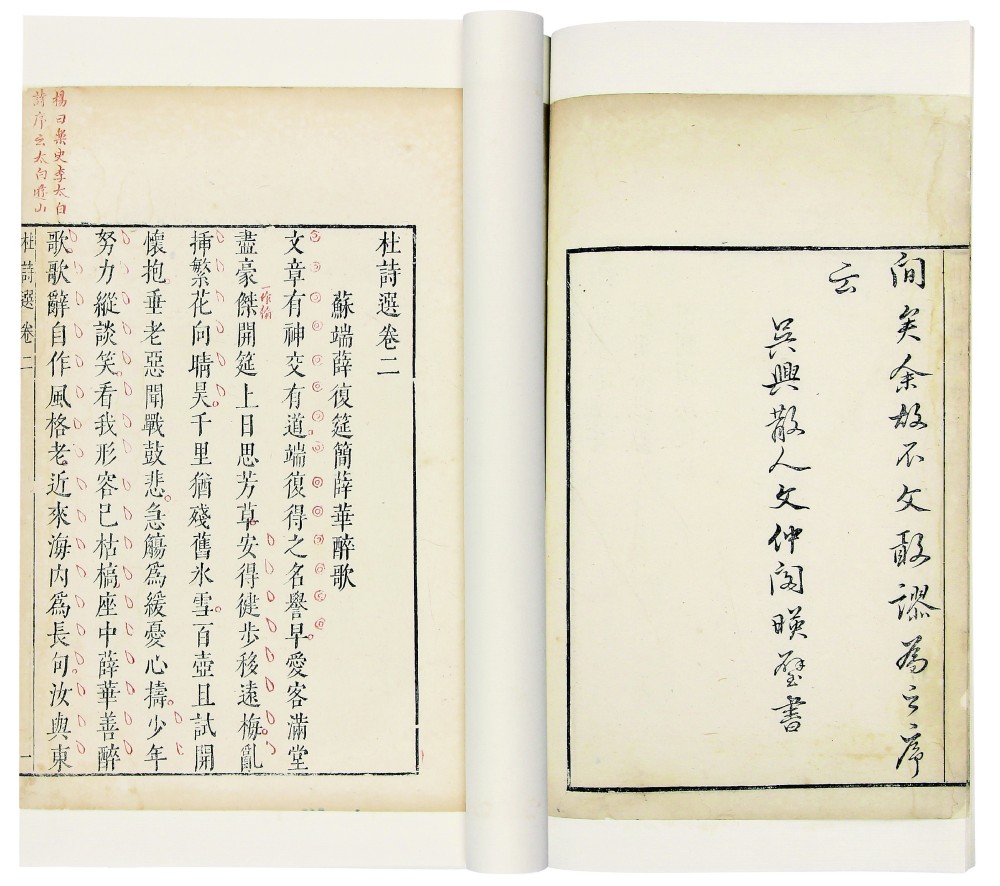 間矣余故不文敢謬為之序
云
吳興散人文仲閔暎璧書
杜詩選卷二
蘇端薛復筵簡薛華醉歌
文章有神交有道端復得之名譽早愛客滿堂
盡豪傑開筵上日思芳草安得徤步移遠梅亂
一作
揷繁花向晴昊千里猶殘舊氷雪百壺且試開
懷抱垂老惡聞戰鼓悲急觴爲緩憂心擣少年
努力縱談笑看我形容已枯槁座中薛華善醉
歌歌辭自作風格老近來海內爲長句汝與東
楊曰樂史李太白
詩序云太白時山
杜詩選 卷二 一